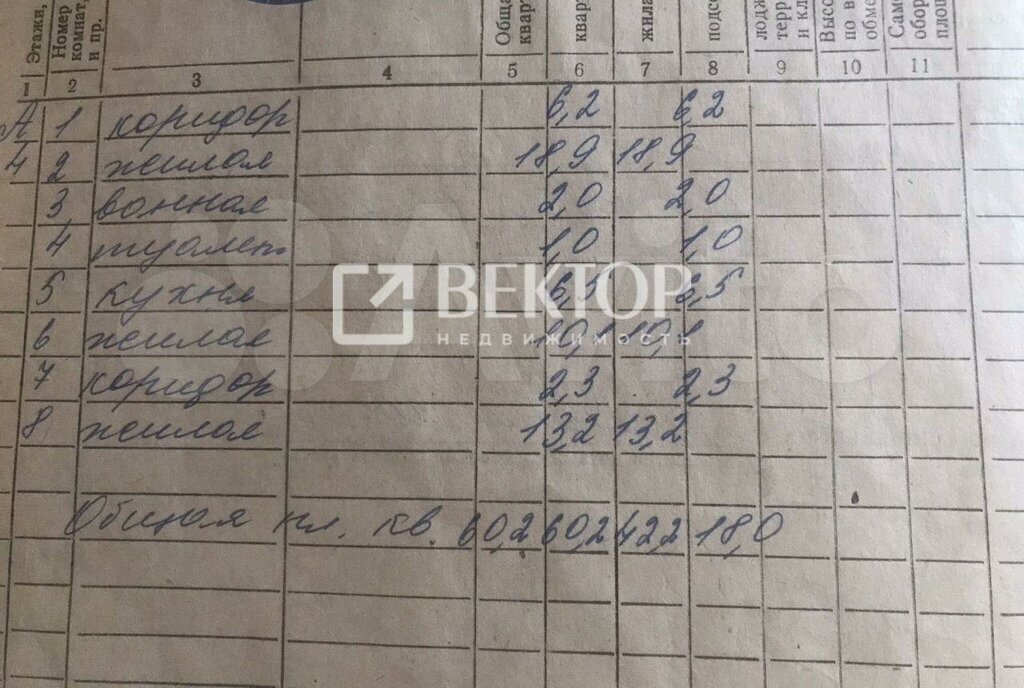 Этажи,
Номер комнат, и пр.
кварт
жила
подсо
лодж терр и кл
Высо по в обме
Само обор площ
1 2 3 4 5 6 7 8 9 10 11
А 1 коридор 6,2 6,2
4 2 жилая 18,9 18,9
3 ванная 2,0 2,0
4 туалет 1,0 1,0
5 кухня 6,5 6,5
6 жилая 10,1 10,1
7 коридор 2,3 2,3
8 жилая 13,2 13,2
Общая пл. кв. 60,2 60,2 42,2 18,0
ВЕКТОР
НЕДВИЖИМОСТЬ
Avito